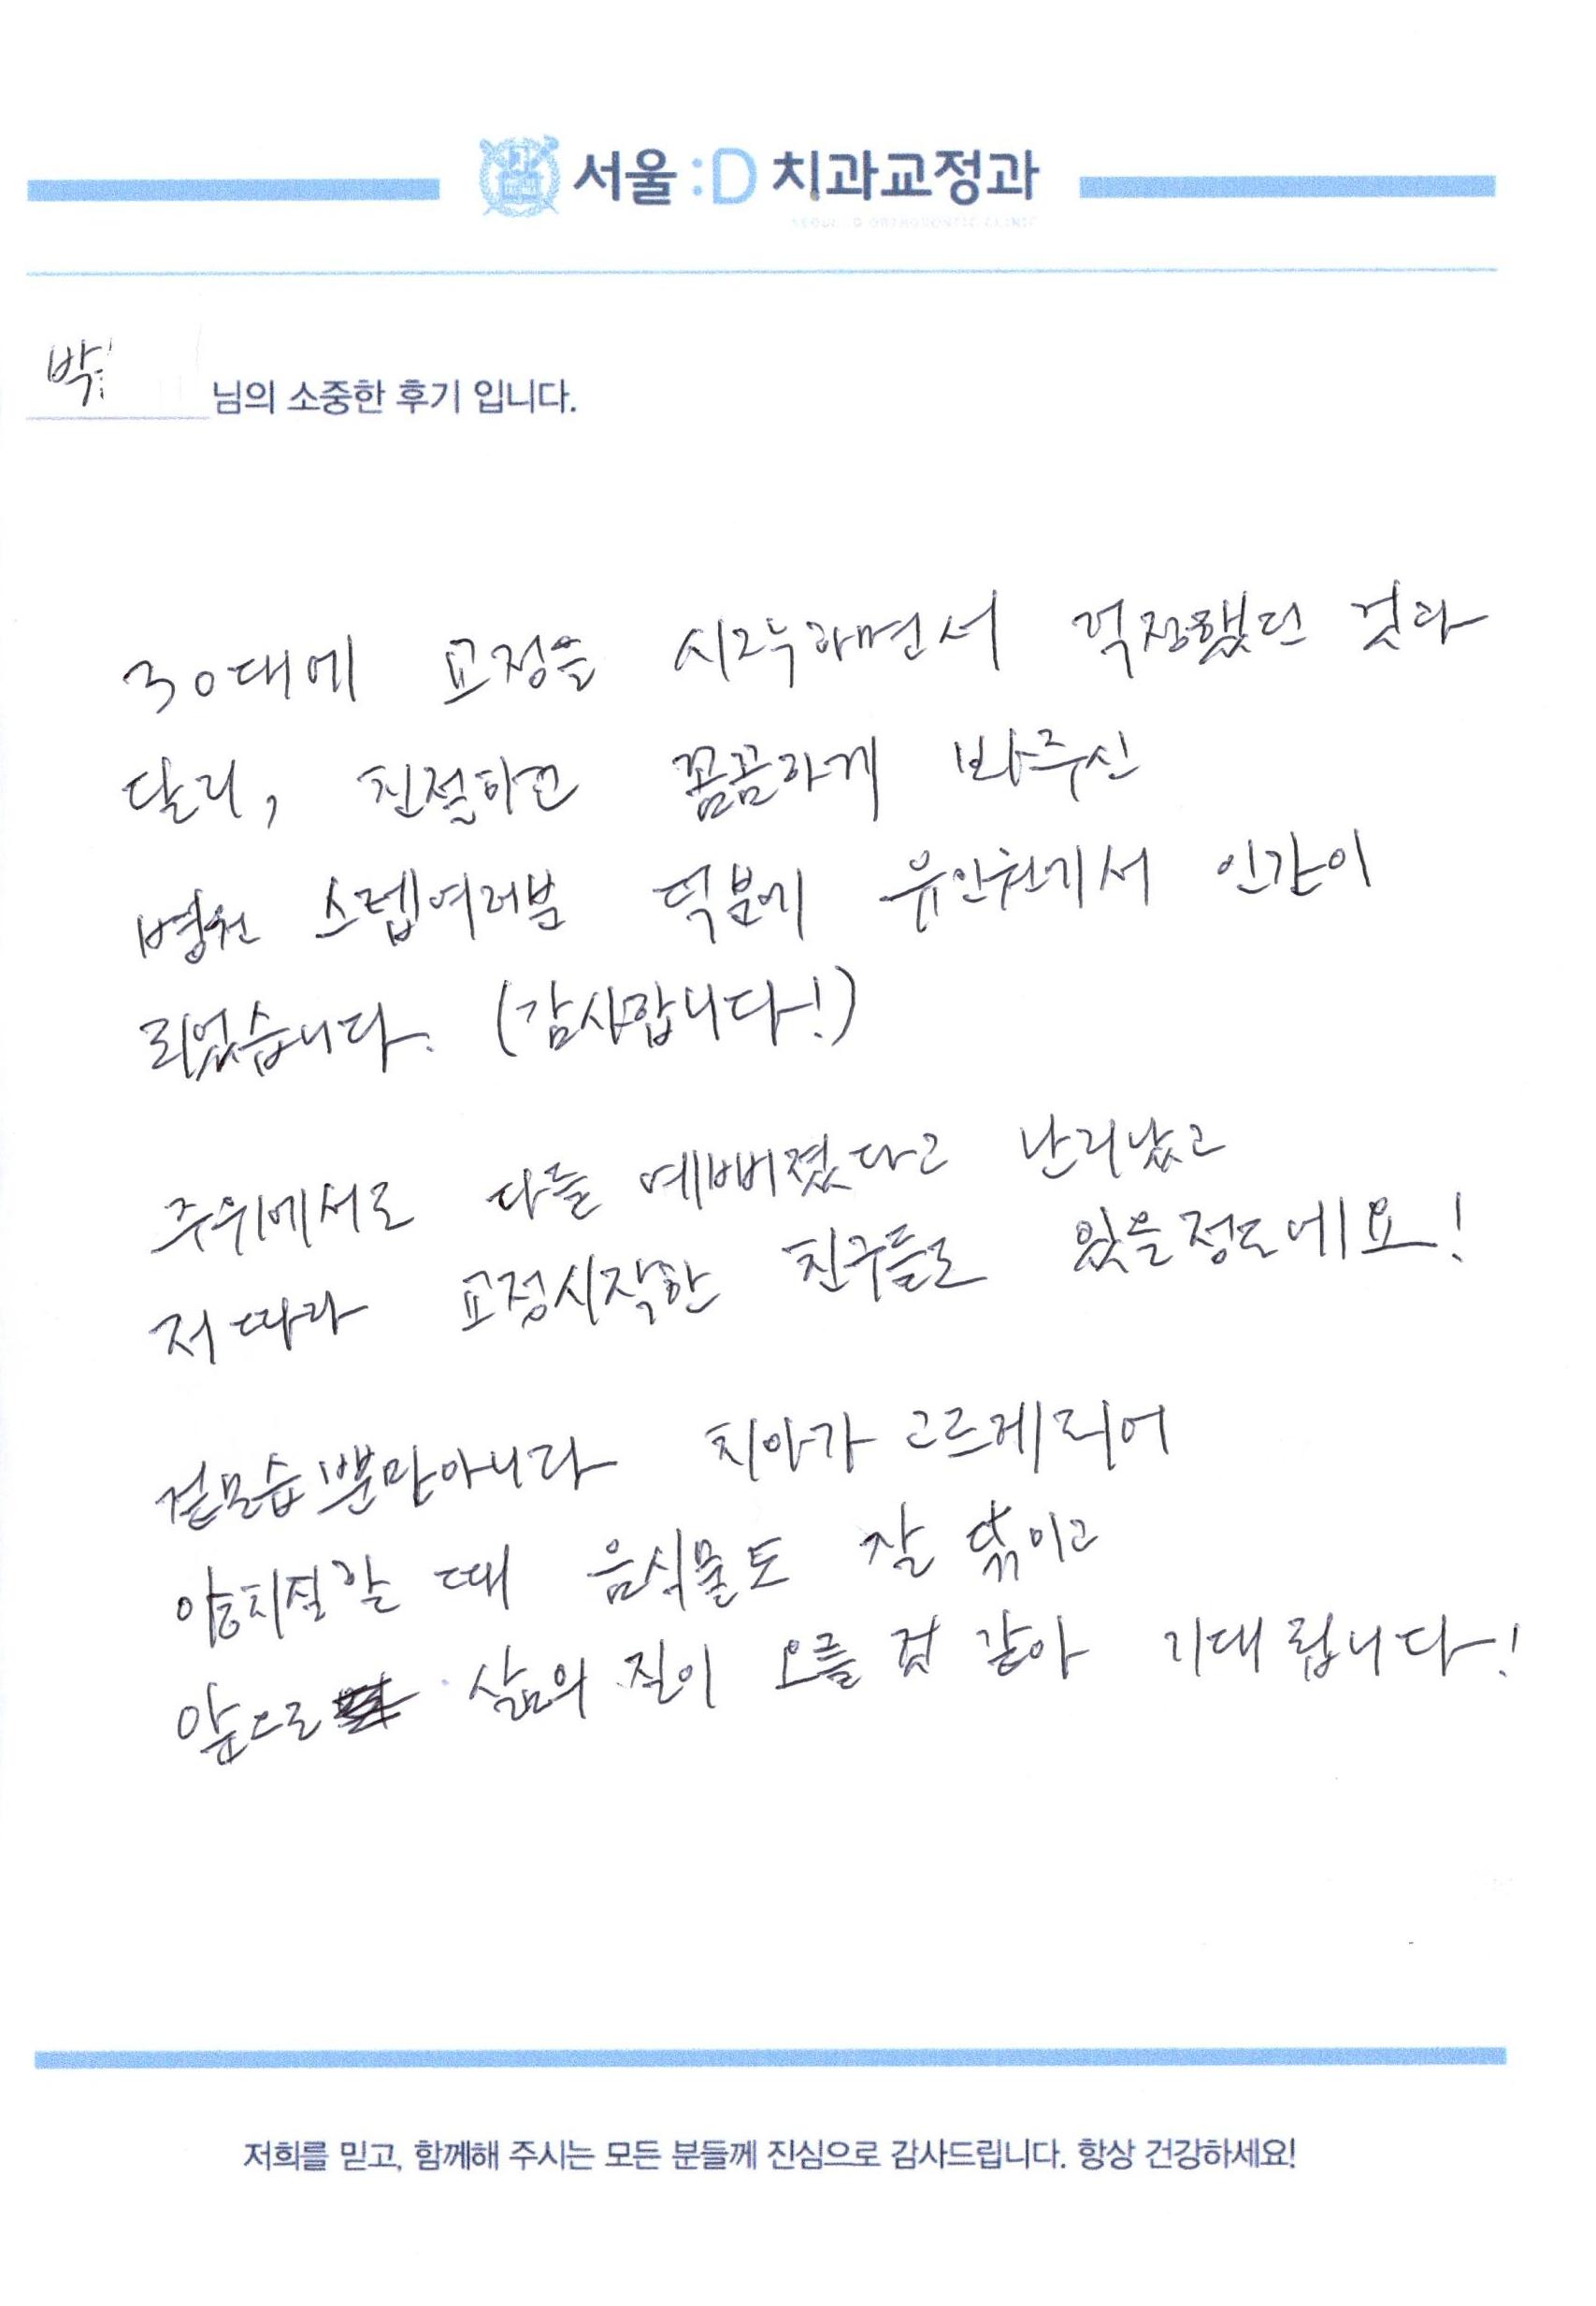 서울:D 치과교정과
SEOUL:D ORTHODONTIC CLINIC
박
님의 소중한 후기 입니다.
30대에 교정을 시작하면서 걱정했던 것과
달리, 친절하고 꼼꼼하게 봐주신
병원 스텝여러분 덕분에 유인원에서 인간이
되었습니다. (감사합니다!)
주위에서도 다들 예뻐졌다고 난리났고
저 따라 교정시작한 친구들도 있을정도에요!
겉모습뿐만아니라 치아가 고르게되어
양치질할 때 음식물도 잘 닦이고
앞으로 삶의 질이 오를 것 같아 기대 됩니다!
저희를 믿고, 함께해 주시는 모든 분들께 진심으로 감사드립니다. 항상 건강하세요!